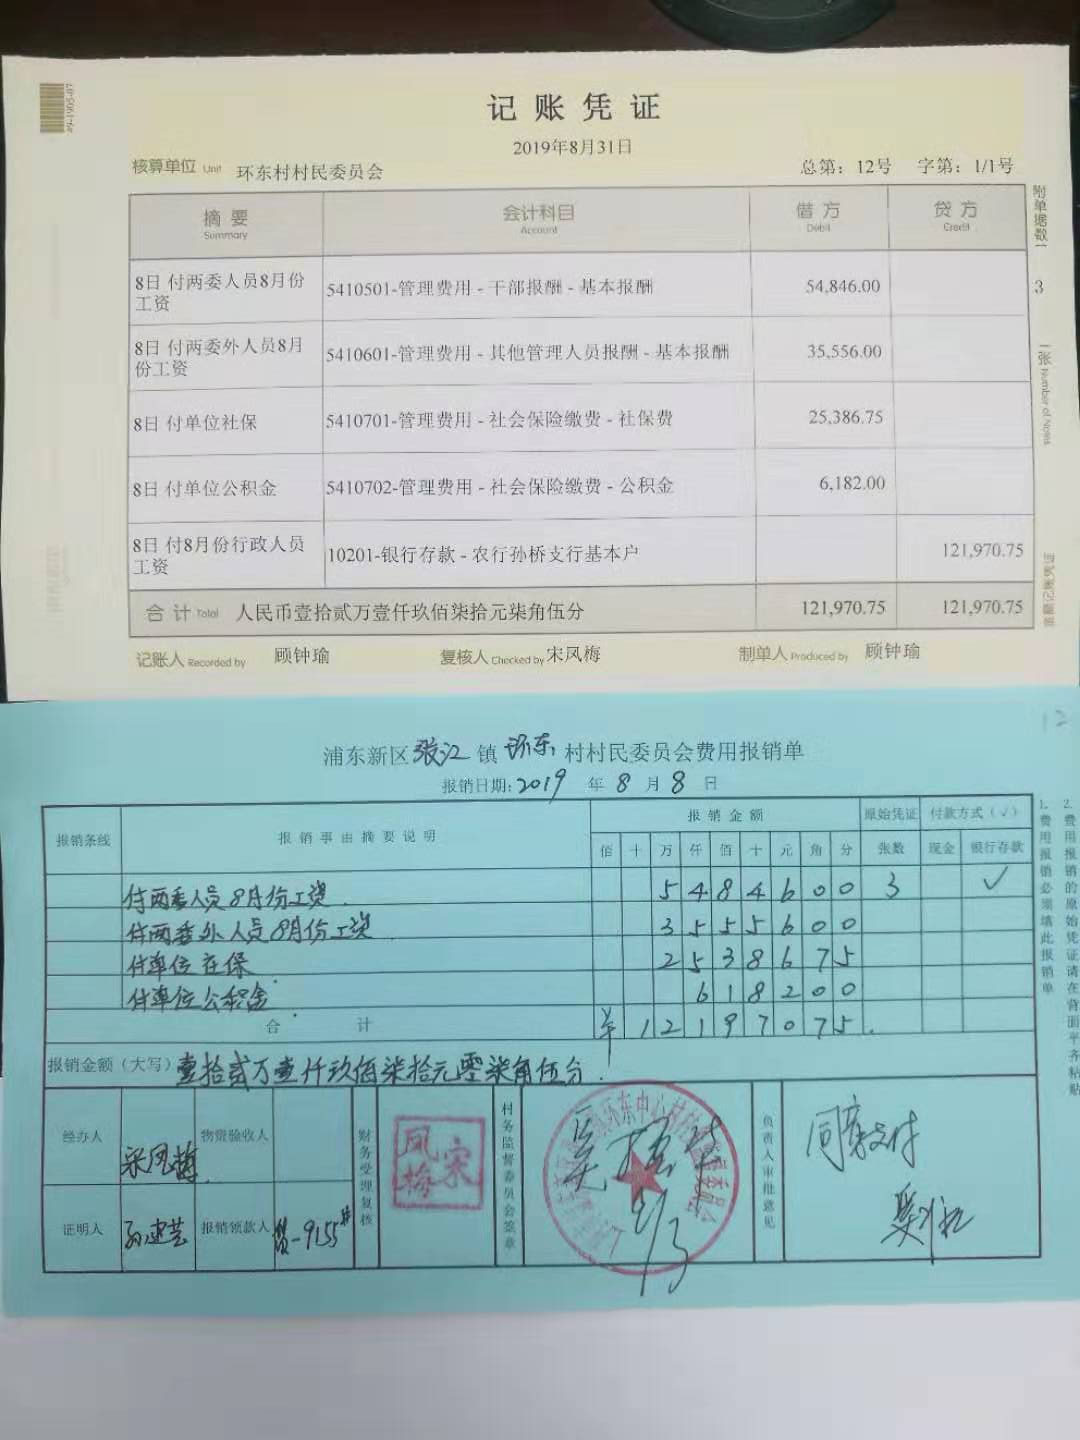 记账凭证
2019年8月31日
核算单位 Unit 环东村村民委员会 总第：12号 字第：1/1号
摘要 Summary 会计科目 Account 借方 Debit 贷方 Credit
8日 付两委人员8月份工资 5410501-管理费用 - 干部报酬 - 基本报酬 54,846.00
8日 付两委外人员8月份工资 5410601-管理费用 - 其他管理人员报酬 - 基本报酬 35,556.00
8日 付单位社保 5410701-管理费用 - 社会保险缴费 - 社保费 25,386.75
8日 付单位公积金 5410702-管理费用 - 社会保险缴费 - 公积金 6,182.00
8日 付8月份行政人员工资 10201-银行存款 - 农行孙桥支行基本户 121,970.75
合计 Total 人民币壹拾贰万壹仟玖佰柒拾元柒角伍分 121,970.75 121,970.75
记账人 Recorded by 顾钟瑜 复核人 Checked by 宋凤梅 制单人 Produced by 顾钟瑜
附单据数 3 张 Number of Notes
12
浦东新区张江镇环东村村民委员会费用报销单
报销日期：2019年8月8日
报销条线 报销事由摘要说明 报销金额 原始凭证张数 付款方式（√）
佰 十 万 仟 佰 十 元 角 分 现金 银行存款
付两委人员8月份工资. 5 4 8 4 6 0 0 3 √
付两委外人员8月份工资. 3 5 5 5 6 0 0
付单位社保 2 5 3 8 6 7 5
付单位公积金. 6 1 8 2 0 0
合计 ¥ 1 2 1 9 7 0 7 5.
报销金额（大写）壹拾贰万壹仟玖佰柒拾元零柒角伍分.
经办人 宋凤梅. 物资验收人
证明人 孙建芸 报销领款人 贷-9155#
财务受理复核 宋凤梅
村务监督委员会签章
负责人审批意见 同意支付
1.费用报销必须填此报销单
2.费用报销的原始凭证请在背面平齐粘贴